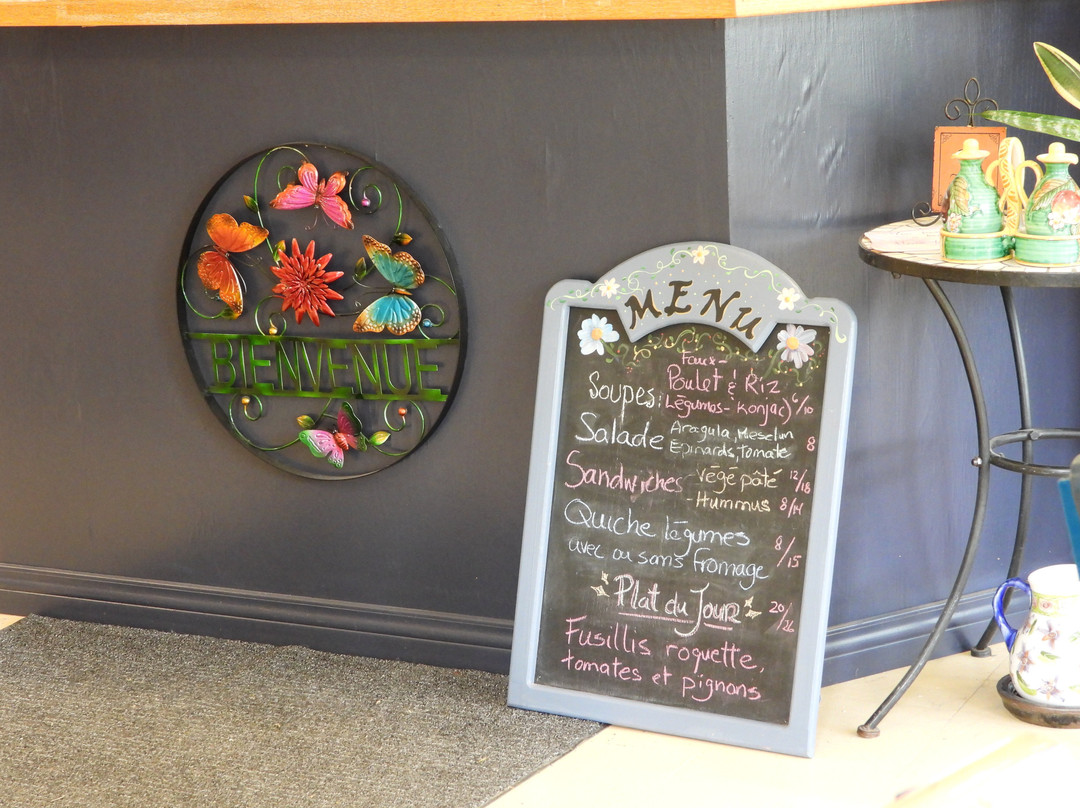 BIENVENUE
MENU
Faux-
Poulet & Riz
Soupes: Légumes - Konjac) 6/10
Salade Aragula, Mesclun
Epinards, tomate 8
Sandwiches - végé pâté 12/18
- Hummus 8/14
Quiche légumes
avec ou sans fromage 8/15
Plat du Jour 20/26
Fusillis roquette,
tomates et pignons